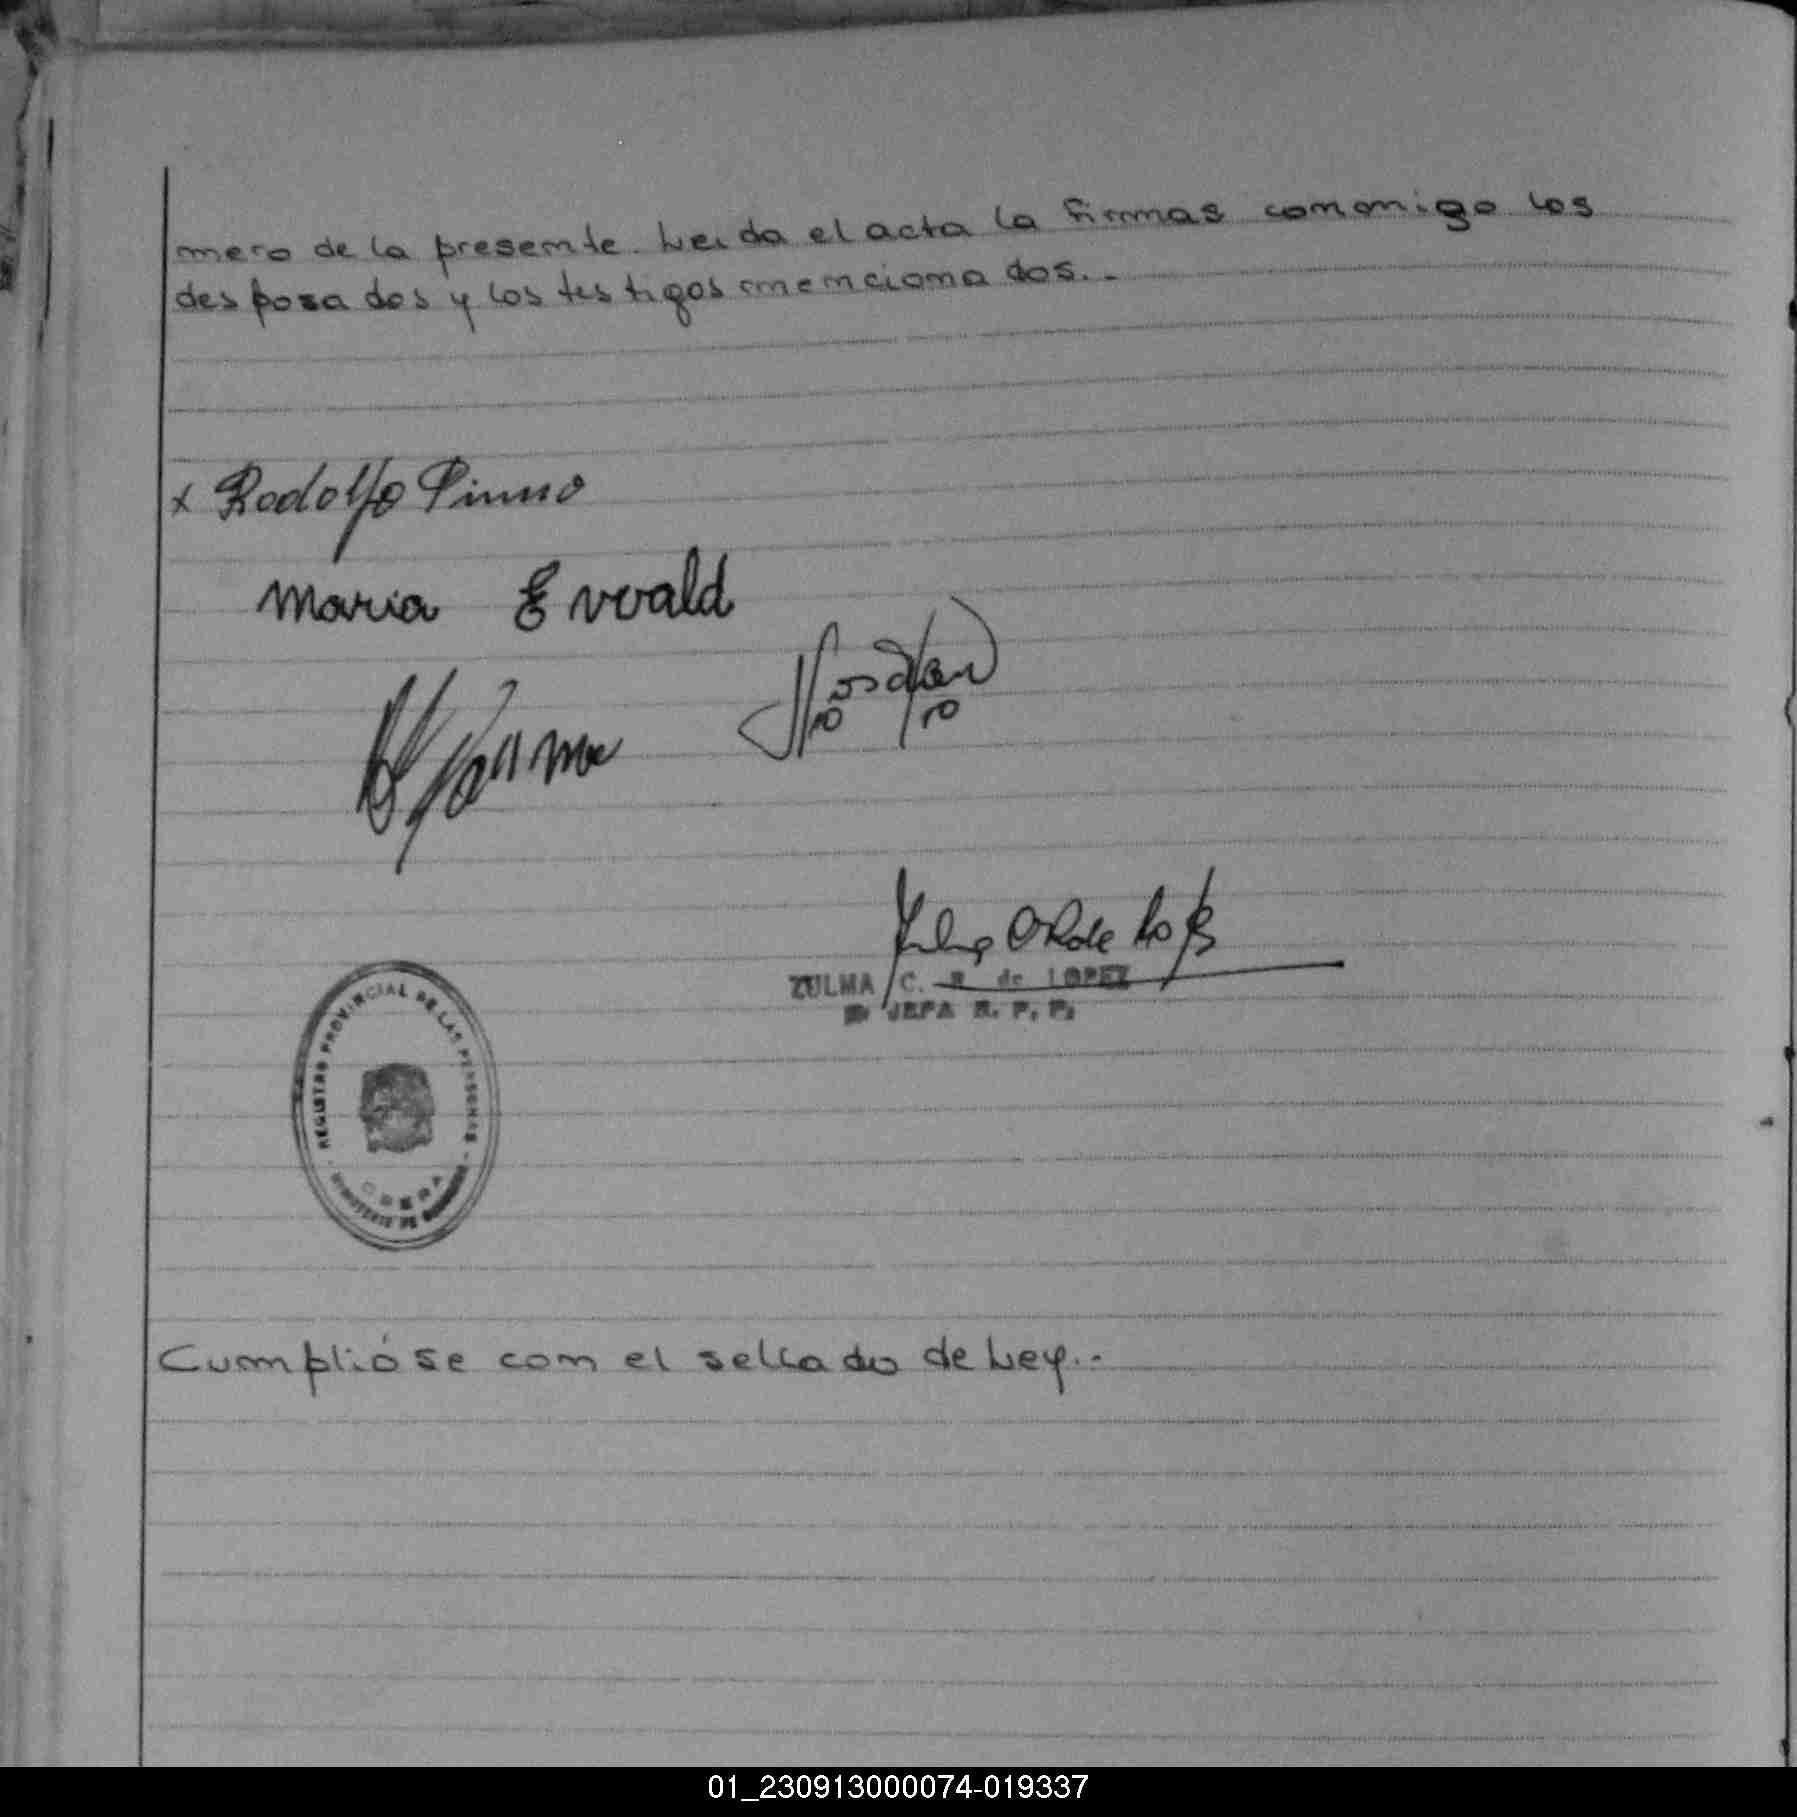 mero de la presente. Leida el acta la firmas conmigo los
desposados y los testigos mencionados..-
x Rodolfo Pinno
Maria Ewald
ZULMA C. R de LOPEZ
JEFA R. P. P.
REGISTRO PROVINCIAL DE LAS PERSONAS
OBERA
MINISTERIO DE
Cumplióse con el sellado de Ley..-
01_230913000074-019337